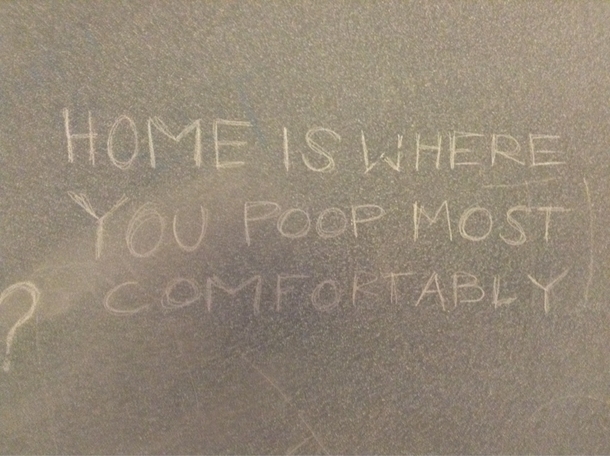 HOME IS WHERE
YOU POOP MOST
COMFORTABLY
?